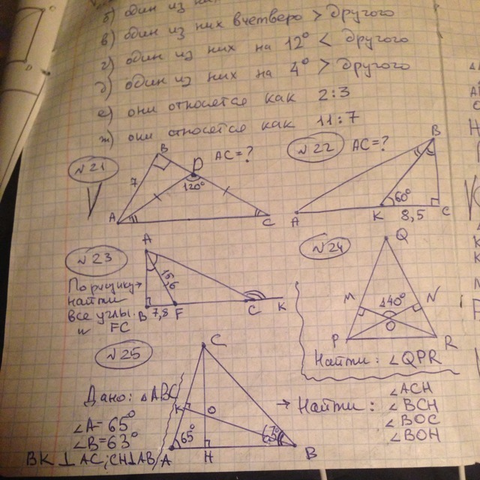 б) один из них
в) один из них вчетверо > другого
г) один из них на 12° < другого
д) один из них на 4° > другого
е) они относятся как 2:3
ж) они относятся как 11:7
№21
B
D
AC=?
7
120°
A
C
№22
AC=?
B
60°
A
K
8,5
C
№23
A
По рисунку
найти
все углы
и FC
15,6
B
7,8
F
C
K
№24
Q
M
N
140°
O
P
R
Найти: ∠QPR
№25
C
Дано: △ABC
∠A=65°
∠B=63°
BK⊥AC; CH⊥AB
K
O
65°
63°
A
H
B
→ Найти: ∠ACH
∠BCH
∠BOC
∠BOH